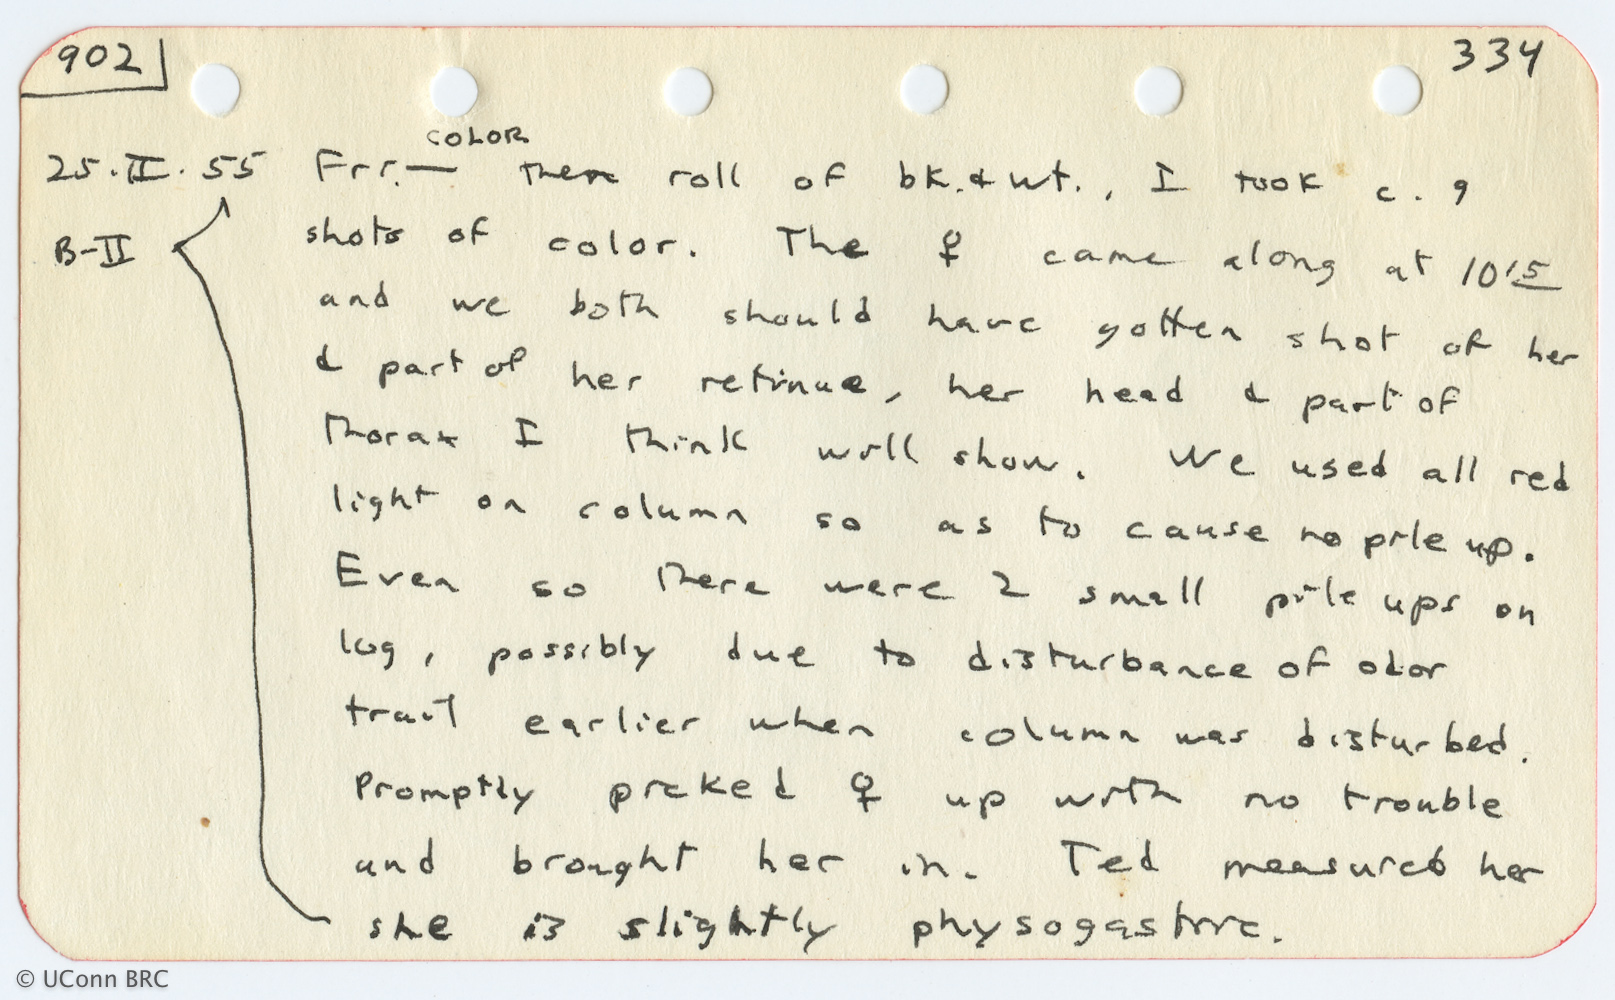 902 334
COLOR
25.II.55 Frr.— then roll of bk. & wt., I took c. 9
B-II shots of color. The ♀ came along at 1015
and we both should have gotten shot of her
& part of her retinue, her head & part of
thorax I think will show. We used all red
light on column so as to cause no pile up.
Even so there were 2 small pile ups on
log, possibly due to disturbance of odor
trail earlier when column was disturbed.
Promptly picked ♀ up with no trouble
and brought her in. Ted measured her
she is slightly physogastric.
© UConn BRC